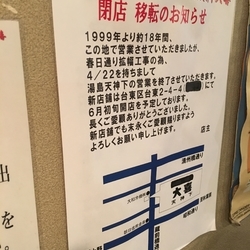 閉店 移転のお知らせ
1999年より約18年間、
この地で営業させていただきましたが、
春日通り拡幅工事の為、
4/22を持ちまして
湯島天神下の営業を終了させていただきます。
新店舗は台東区台東2-4-4
6月初旬開店を予定しております。
長くご愛顧ありがとうございました。
新店舗でも末永くご愛顧賜りますよう
よろしくお願い申し上げます。
店主
清洲橋通り
大喜
天神
昭和通り
蔵前橋通り
出
を